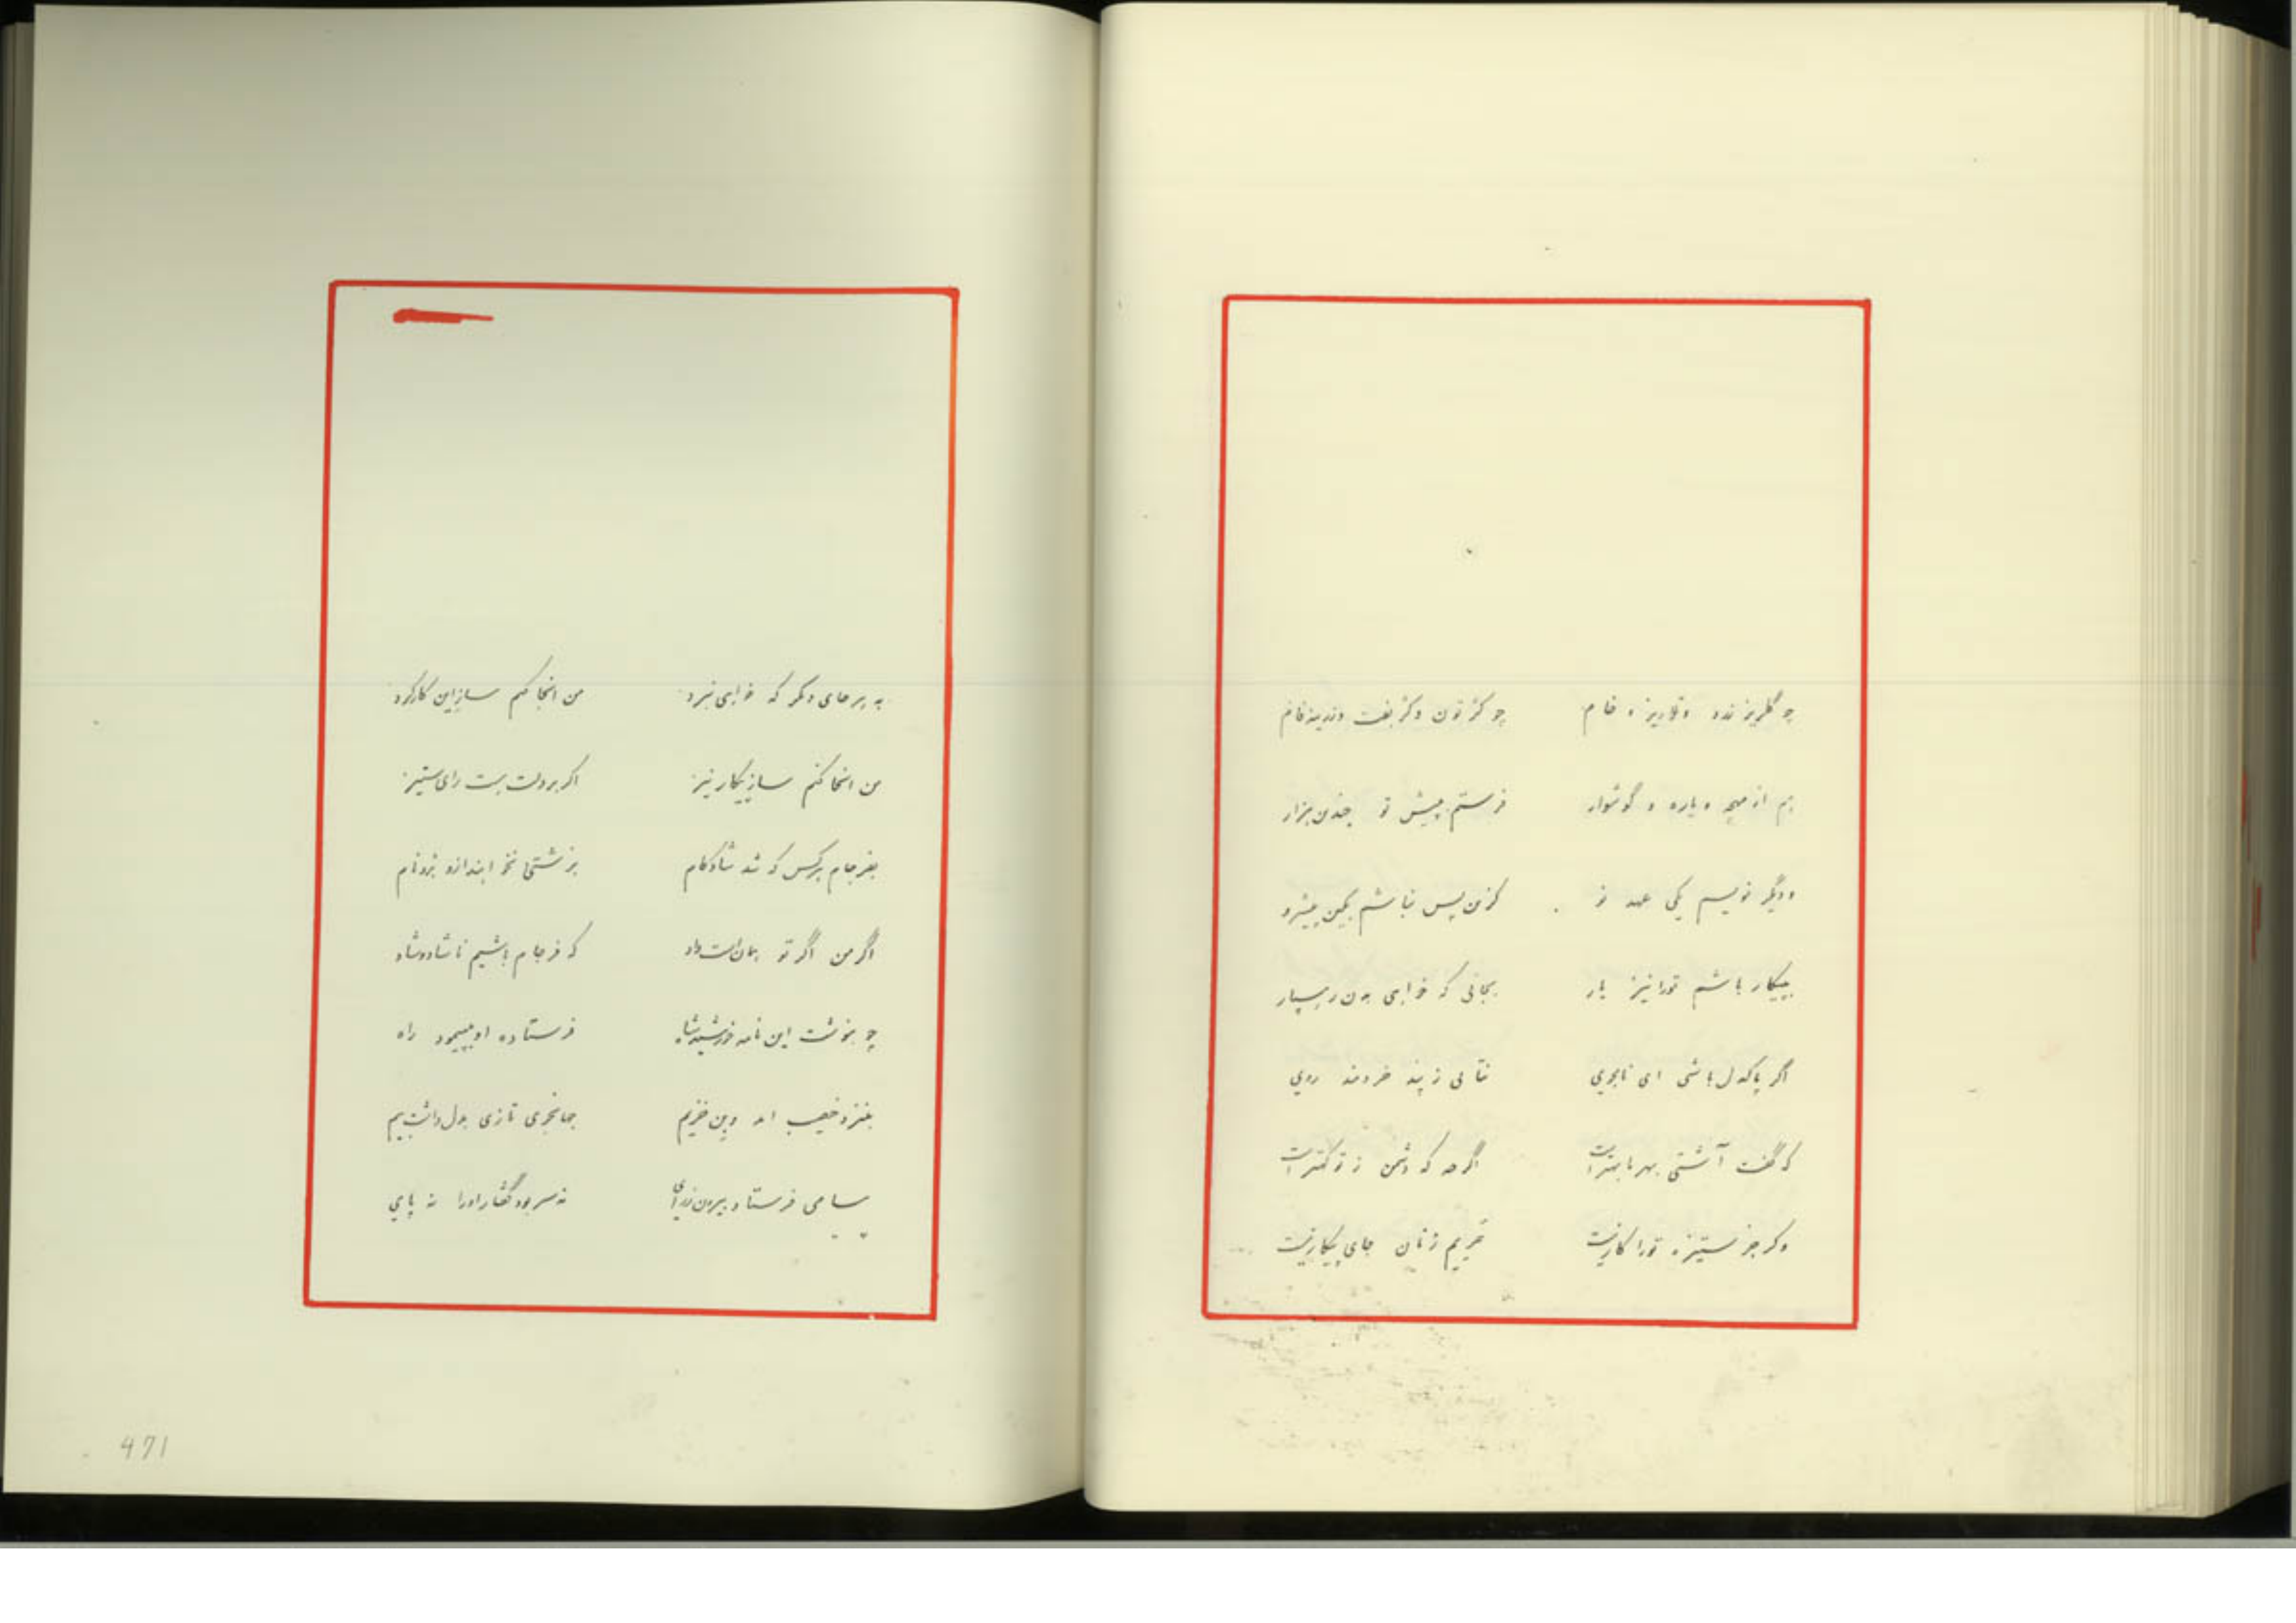 چو گلریز نده و فام چو کژ تون و کژ بفت وزرینه فام
هم از مهد و یاره و گوشوار فرستم پیش تو چندین هزار
ودیگر نویسم یکی عهد نو کزین پس نباشم بکین پیشرو
بپیکار باشم تورا نیز یار بجائی که خواهی بدین رهسپار
اگر پاکدل باشی ای نامجوی نتابی ز پند خردمند روی
که گفت آشتی بهر ما بهتر است اگرچه که دشمن ز تو کمتر است
وگر جز ستیزه تورا کار نیست حریم زنان جای پیکار نیست
به هر جای دیگر که خواهی نبرد من انجا کنم ساز این کارکرد
من انجا کنم ساز پیکار نیز اگر بردلت هست رای ستیز
بفرجام هرکس که شد شادکام بزشتی نخواندازه بزو نام
اگر من اگر تو بداد که فرجام باشیم ناشاد و شاد
چو بنوشت این نامه خورشید شاه فرستاده او بپیمود راه
بنزد خصیب امد وبن خزیم جهانجوی تازی بدل داشت بیم
پیامی فرستاد بیرون ز رای نه سر بود گفتار اورا نه پای
471